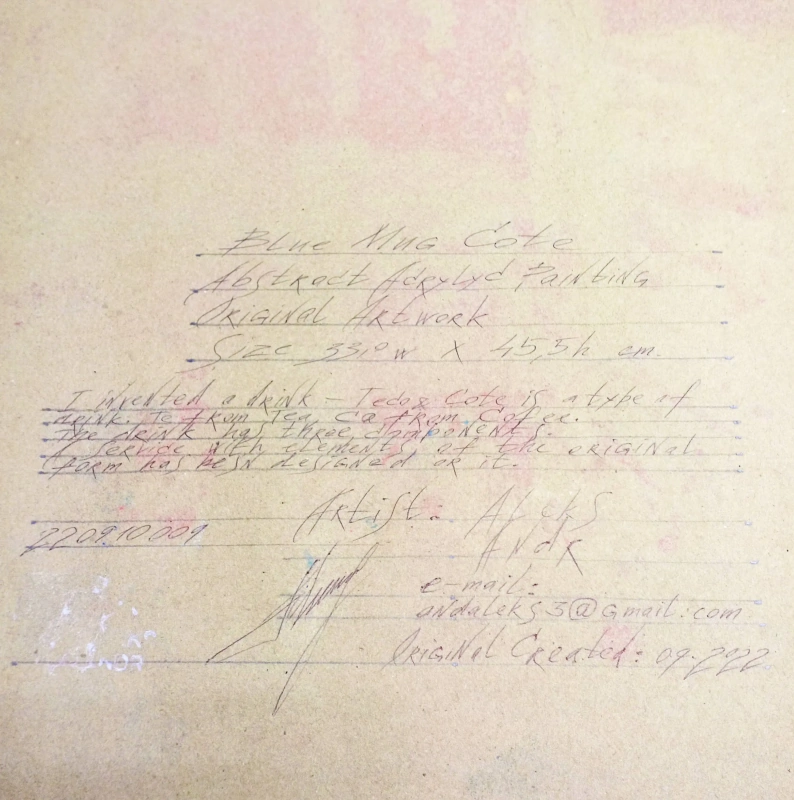 Blue Mug Cote
Abstract Acrylyc Painting
Original Artwork
Size 33,0 w X 45,5 h cm.
I invented a drink – Cote is a type of
drink. Te from Tea, Co from Cofee.
The drink has three components.
A service with elements of the original
form has been designed for it.
Artist: Aleks
Andr
220910009
e-mail:
andaleks3@gmail.com
Original Created: 09.2022